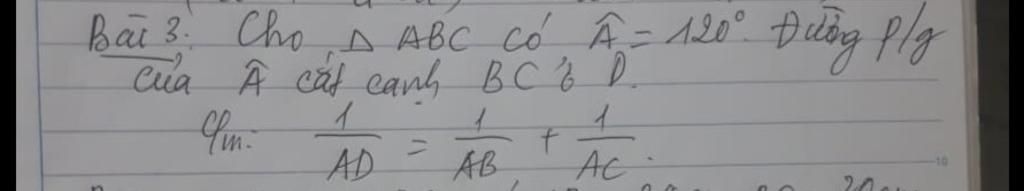 Bài 3: Cho Δ ABC có Â = 120°. Đường p/g
của Â cắt cạnh BC ở D.
C/m: 1/AD = 1/AB + 1/AC.
10